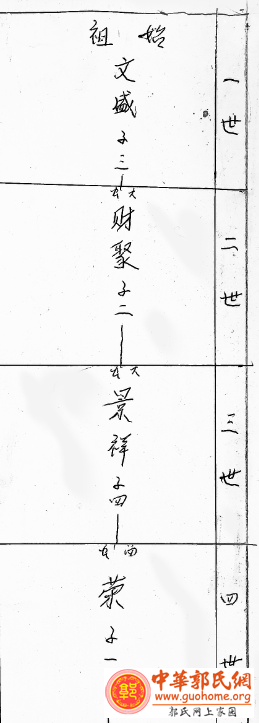 始祖
一世
文盛子三
二世
大房
财聚子二
三世
大房
景祥子四
四世
四房
荣子一
中華郭氏網
www.guohome.org
郭氏网上家园